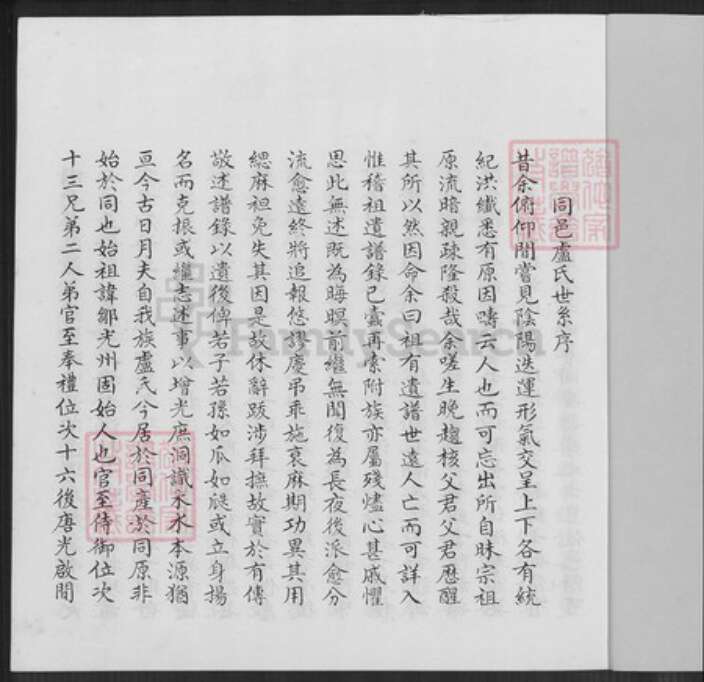 同邑盧氏世系序
昔余俯仰間嘗見陰陽迭運形氣交呈上下各有統
紀洪纖悉有原因嚋云人也而可忘出所自昧宗祖
原流暗親疎隆殺哉余嗟生晚趨核父君父君歷醒
其所以然因命余曰祖有遺譜世遠人亡而可詳入
惟稽祖遺譜錄已蠹再索附族亦屬殘燼心甚戚懼
思此無述既為晦暝前繼無聞復為長夜後派愈分
流愈遠終將追報悠謬慶弔乖施衰麻期功異其用
緦麻袒免失其因是故休辭跋涉拜撫故實於有傳
敬述譜錄以遺後俾若子若孫如瓜如瓞或立身揚
名而克振或繼志述事以增光庶洞識水木本源猶
亘今古日月夫自我族盧氏今居於同產於同原非
始於同也始祖諱鄒光州固始人也官至侍御位次
十三兄弟二人弟官至奉禮位次十六後唐光啟間
FamilySearch